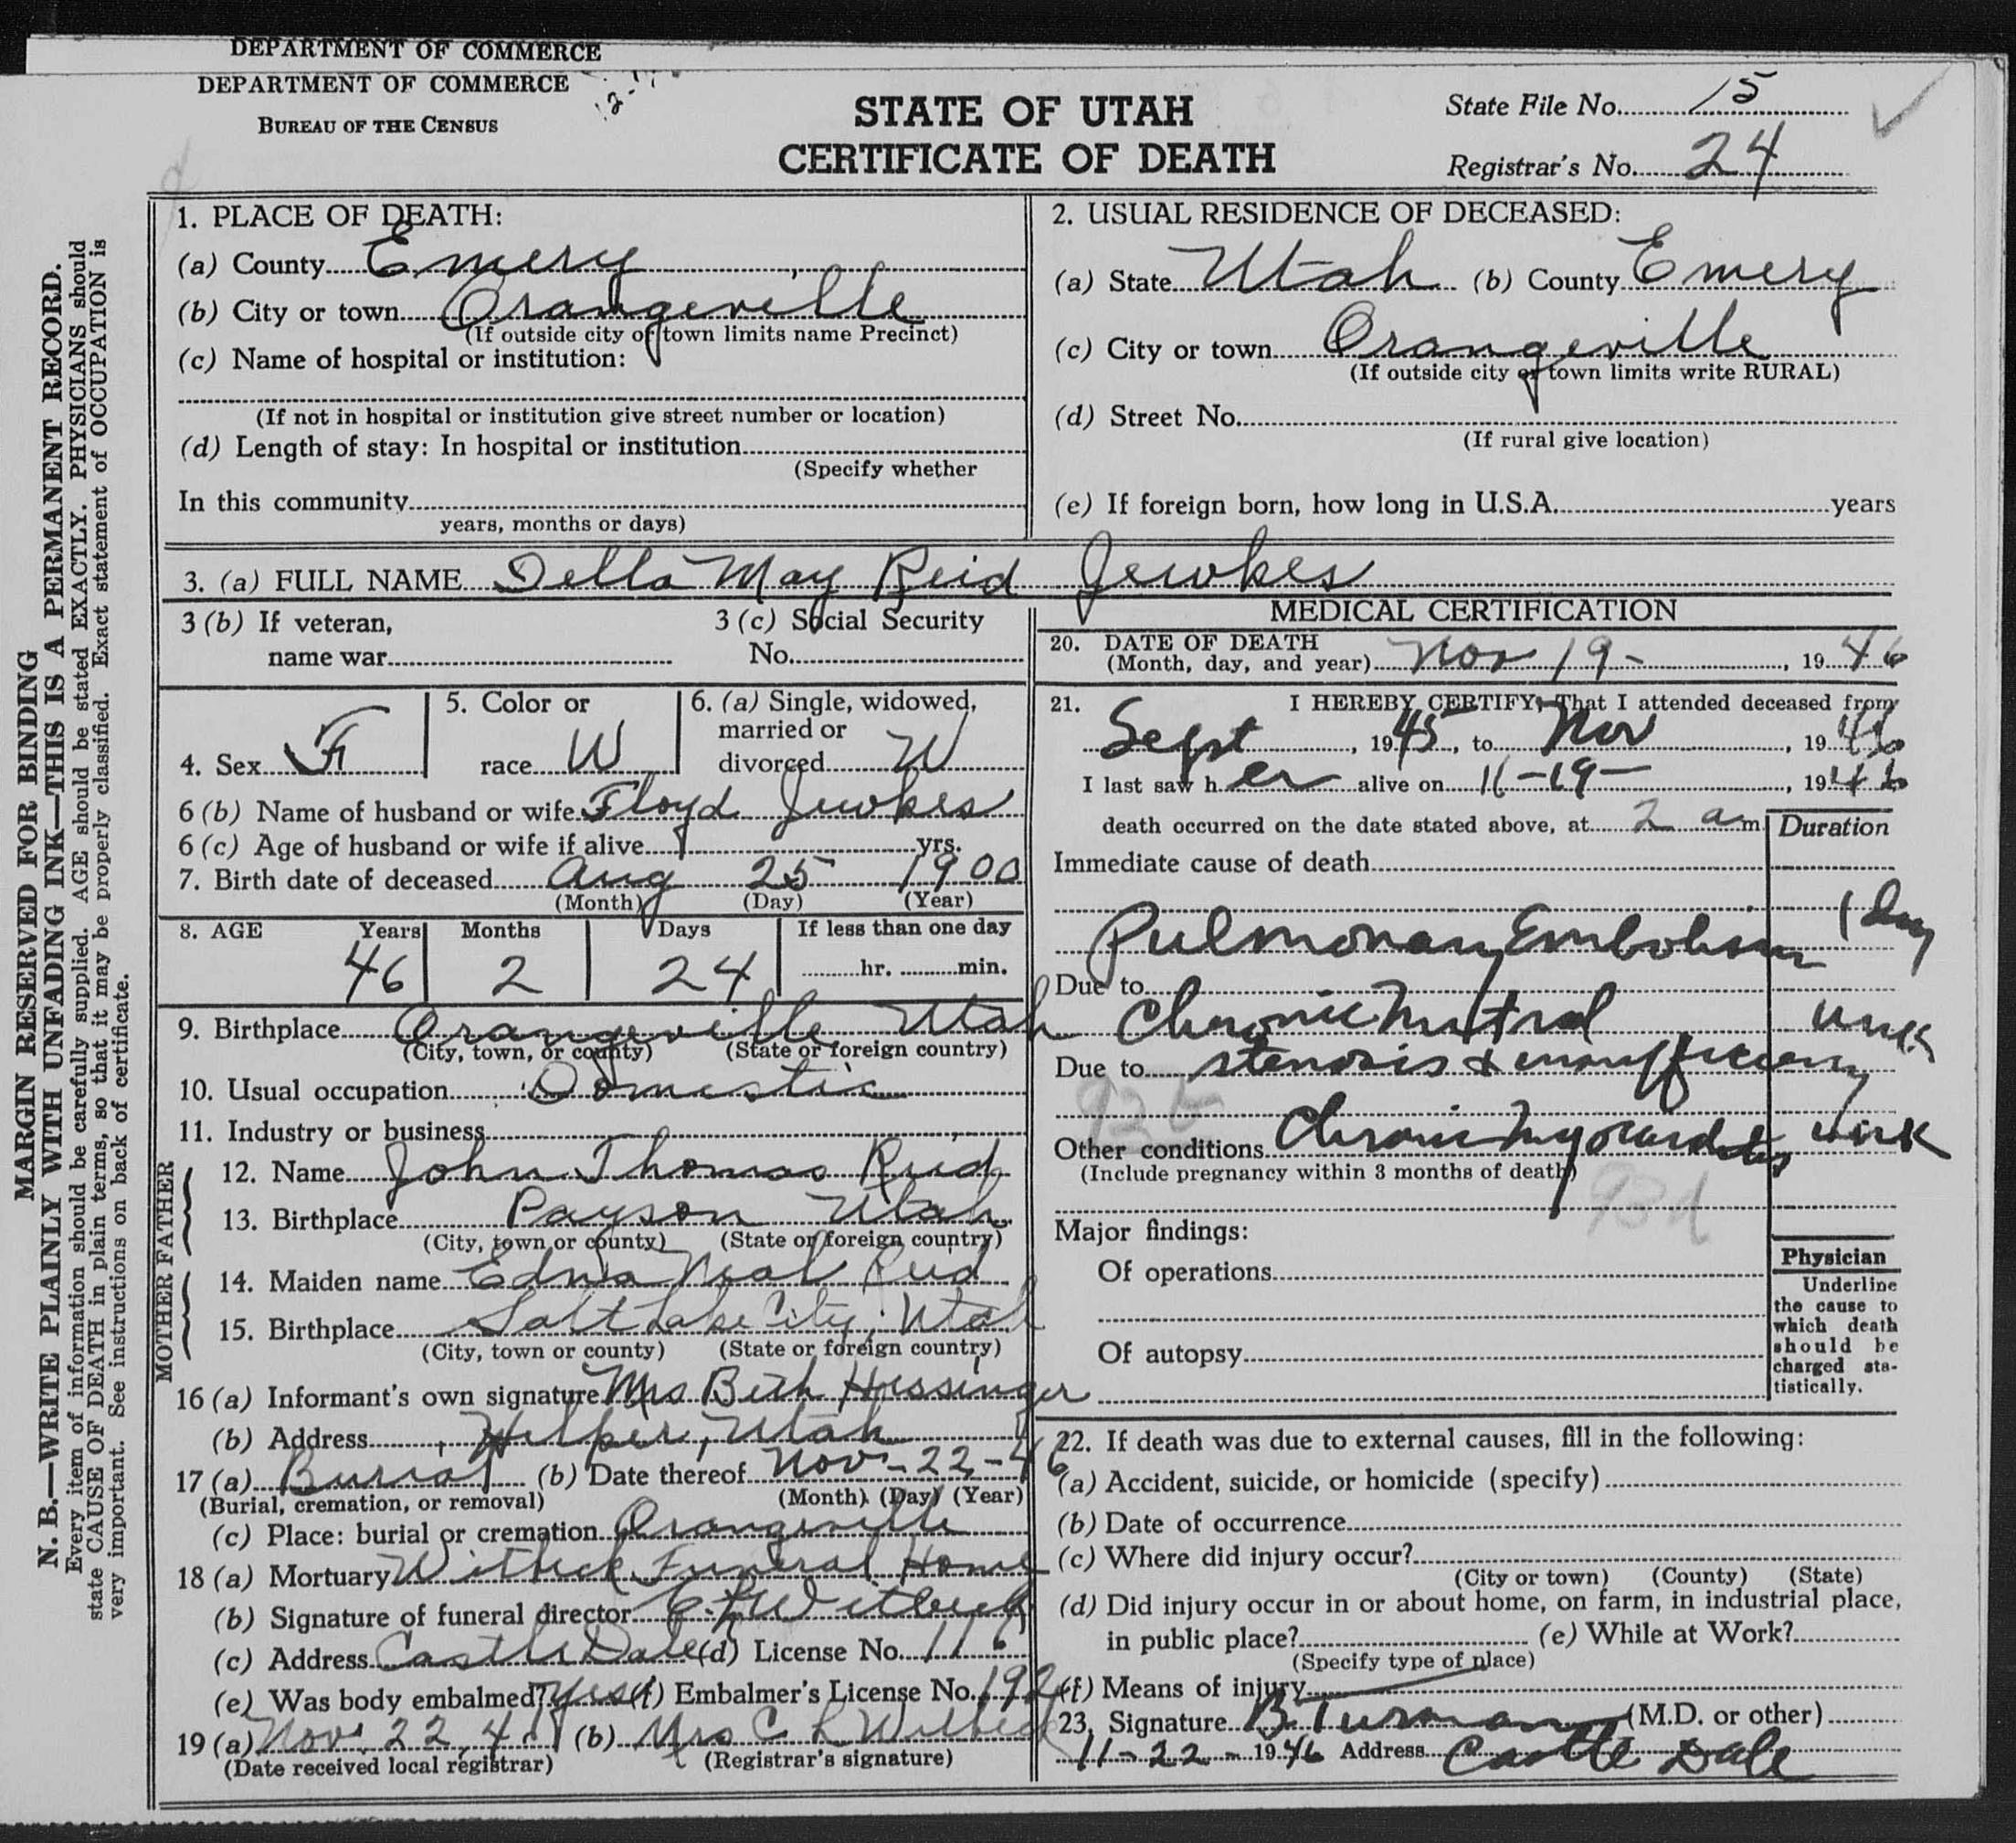 DEPARTMENT OF COMMERCE
DEPARTMENT OF COMMERCE
BUREAU OF THE CENSUS
STATE OF UTAH
CERTIFICATE OF DEATH
State File No. 15
Registrar's No. 24
MARGIN RESERVED FOR BINDING
N. B.—WRITE PLAINLY WITH UNFADING INK—THIS IS A PERMANENT RECORD.
Every item of information should be carefully supplied. AGE should be stated EXACTLY. PHYSICIANS should
state CAUSE OF DEATH in plain terms, so that it may be properly classified. Exact statement of OCCUPATION is
very important. See instructions on back of certificate.
1. PLACE OF DEATH:
(a) County Emery
(b) City or town Orangeville
(If outside city or town limits name Precinct)
(c) Name of hospital or institution:
(If not in hospital or institution give street number or location)
(d) Length of stay: In hospital or institution
(Specify whether
In this community
years, months or days)
2. USUAL RESIDENCE OF DECEASED:
(a) State Utah (b) County Emery
(c) City or town Orangeville
(If outside city or town limits write RURAL)
(d) Street No.
(If rural give location)
(e) If foreign born, how long in U.S.A. years
3. (a) FULL NAME Della May Reid Jewkes
3 (b) If veteran,
name war
3 (c) Social Security
No.
4. Sex F
5. Color or
race W
6. (a) Single, widowed,
married or
divorced W
6 (b) Name of husband or wife Floyd Jewkes
6 (c) Age of husband or wife if alive yrs.
7. Birth date of deceased Aug 25 1900
(Month) (Day) (Year)
8. AGE Years Months Days If less than one day
46 2 24 hr. min.
9. Birthplace Orangeville Utah
(City, town, or county) (State or foreign country)
10. Usual occupation Domestic
11. Industry or business
FATHER
12. Name John Thomas Reid
13. Birthplace Payson Utah
(City, town or county) (State or foreign country)
MOTHER
14. Maiden name Edna Neal Reid
15. Birthplace Salt Lake City, Utah
(City, town or county) (State or foreign country)
16 (a) Informant's own signature Mrs Beth Hessinger
(b) Address Helper, Utah
17 (a) Burial (b) Date thereof Nov-22-46
(Burial, cremation, or removal) (Month) (Day) (Year)
(c) Place: burial or cremation Orangeville
18 (a) Mortuary Witbeck Funeral Home
(b) Signature of funeral director C. L. Witbeck
(c) Address Castle Dale (d) License No. 116
(e) Was body embalmed? yes (f) Embalmer's License No. 192
19 (a) Nov. 22, (b) Mrs C L Witbeck
(Date received local registrar) (Registrar's signature)
MEDICAL CERTIFICATION
20. DATE OF DEATH
(Month, day, and year) Nov 19-, 1946
21. I HEREBY CERTIFY, That I attended deceased from
Sept, 1945, to Nov, 1946
I last saw her alive on 11-19-, 1946
death occurred on the date stated above, at 2 am
Duration
Immediate cause of death
Pulmonary Embolism 1 Day
Due to
Chronic Mitral unk
Due to stenosis & insufficiency
Other conditions Chronic Myocarditis unk
(Include pregnancy within 3 months of death)
93d
Major findings:
Of operations
Of autopsy
Physician
Underline
the cause to
which death
should be
charged sta-
tistically.
22. If death was due to external causes, fill in the following:
(a) Accident, suicide, or homicide (specify)
(b) Date of occurrence
(c) Where did injury occur?
(City or town) (County) (State)
(d) Did injury occur in or about home, on farm, in industrial place,
in public place? (e) While at Work?
(Specify type of place)
(f) Means of injury
23. Signature B. Turman (M.D. or other)
11-22-1946 Address Castle Dale